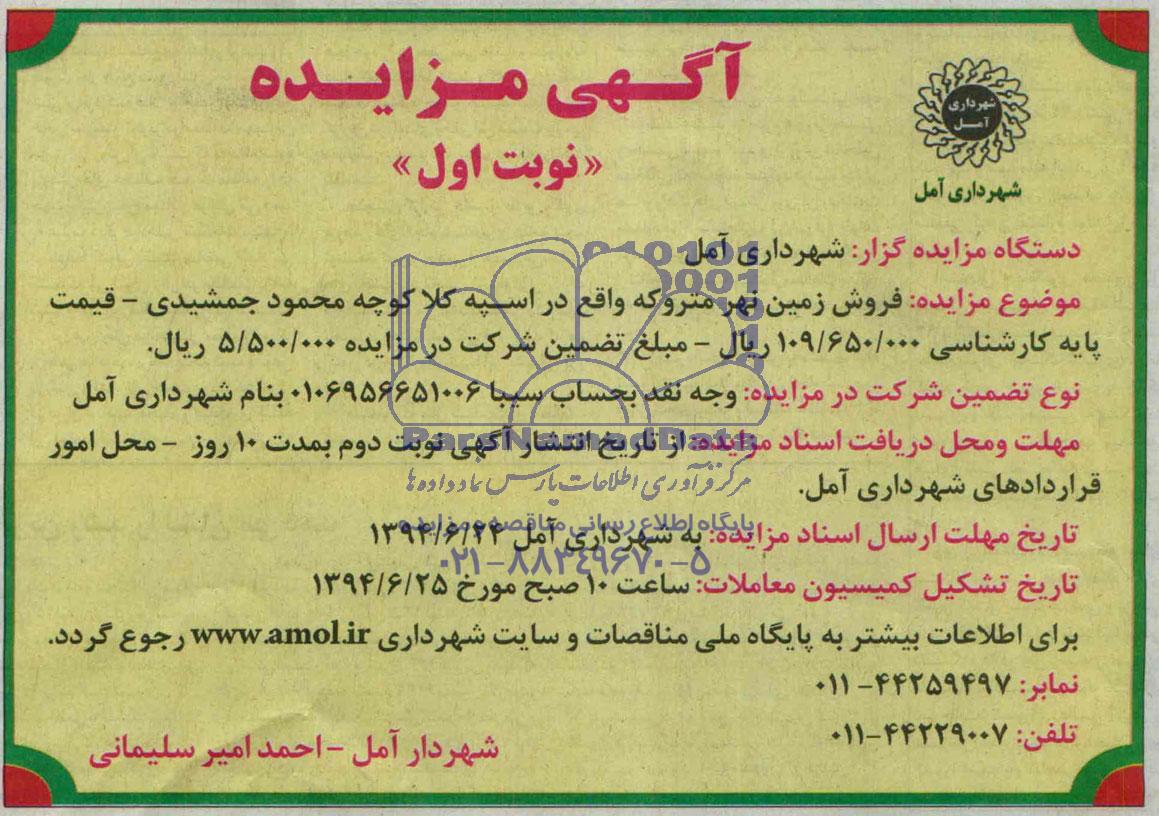 آگهی مزایده
«نوبت اول»
شهرداری
آمل
شهرداری آمل
دستگاه مزایده گزار: شهرداری آمل
موضوع مزایده: فروش زمین نهر متروکه واقع در اسپه کلا کوچه محمود جمشیدی - قیمت
پایه کارشناسی ۱۰۹/۶۵۰/۰۰۰ ریال - مبلغ تضمین شرکت در مزایده ۵/۵۰۰/۰۰۰ ریال.
نوع تضمین شرکت در مزایده: وجه نقد بحساب سیبا ۰۱۰۶۹۵۶۶۵۱۰۰۶ بنام شهرداری آمل
مهلت ومحل دریافت اسناد مزایده: از تاریخ انتشار آگهی نوبت دوم بمدت ۱۰ روز - محل امور
قراردادهای شهرداری آمل.
تاریخ مهلت ارسال اسناد مزایده: به شهرداری آمل ۱۳۹۴/۶/۲۴
تاریخ تشکیل کمیسیون معاملات: ساعت ۱۰ صبح مورخ ۱۳۹۴/۶/۲۵
برای اطلاعات بیشتر به پایگاه ملی مناقصات و سایت شهرداری www.amol.ir رجوع گردد.
نمابر: ۴۴۲۵۹۴۹۷-۰۱۱
تلفن: ۴۴۲۲۹۰۰۷-۰۱۱
شهردار آمل - احمد امیر سلیمانی
ParsNamadData
مرکز فرآوری اطلاعات پارس نماد داده ها
پایگاه اطلاع رسانی مناقصه و مزایده
۰۲۱-۸۸۳۴۹۶۷۰-۵